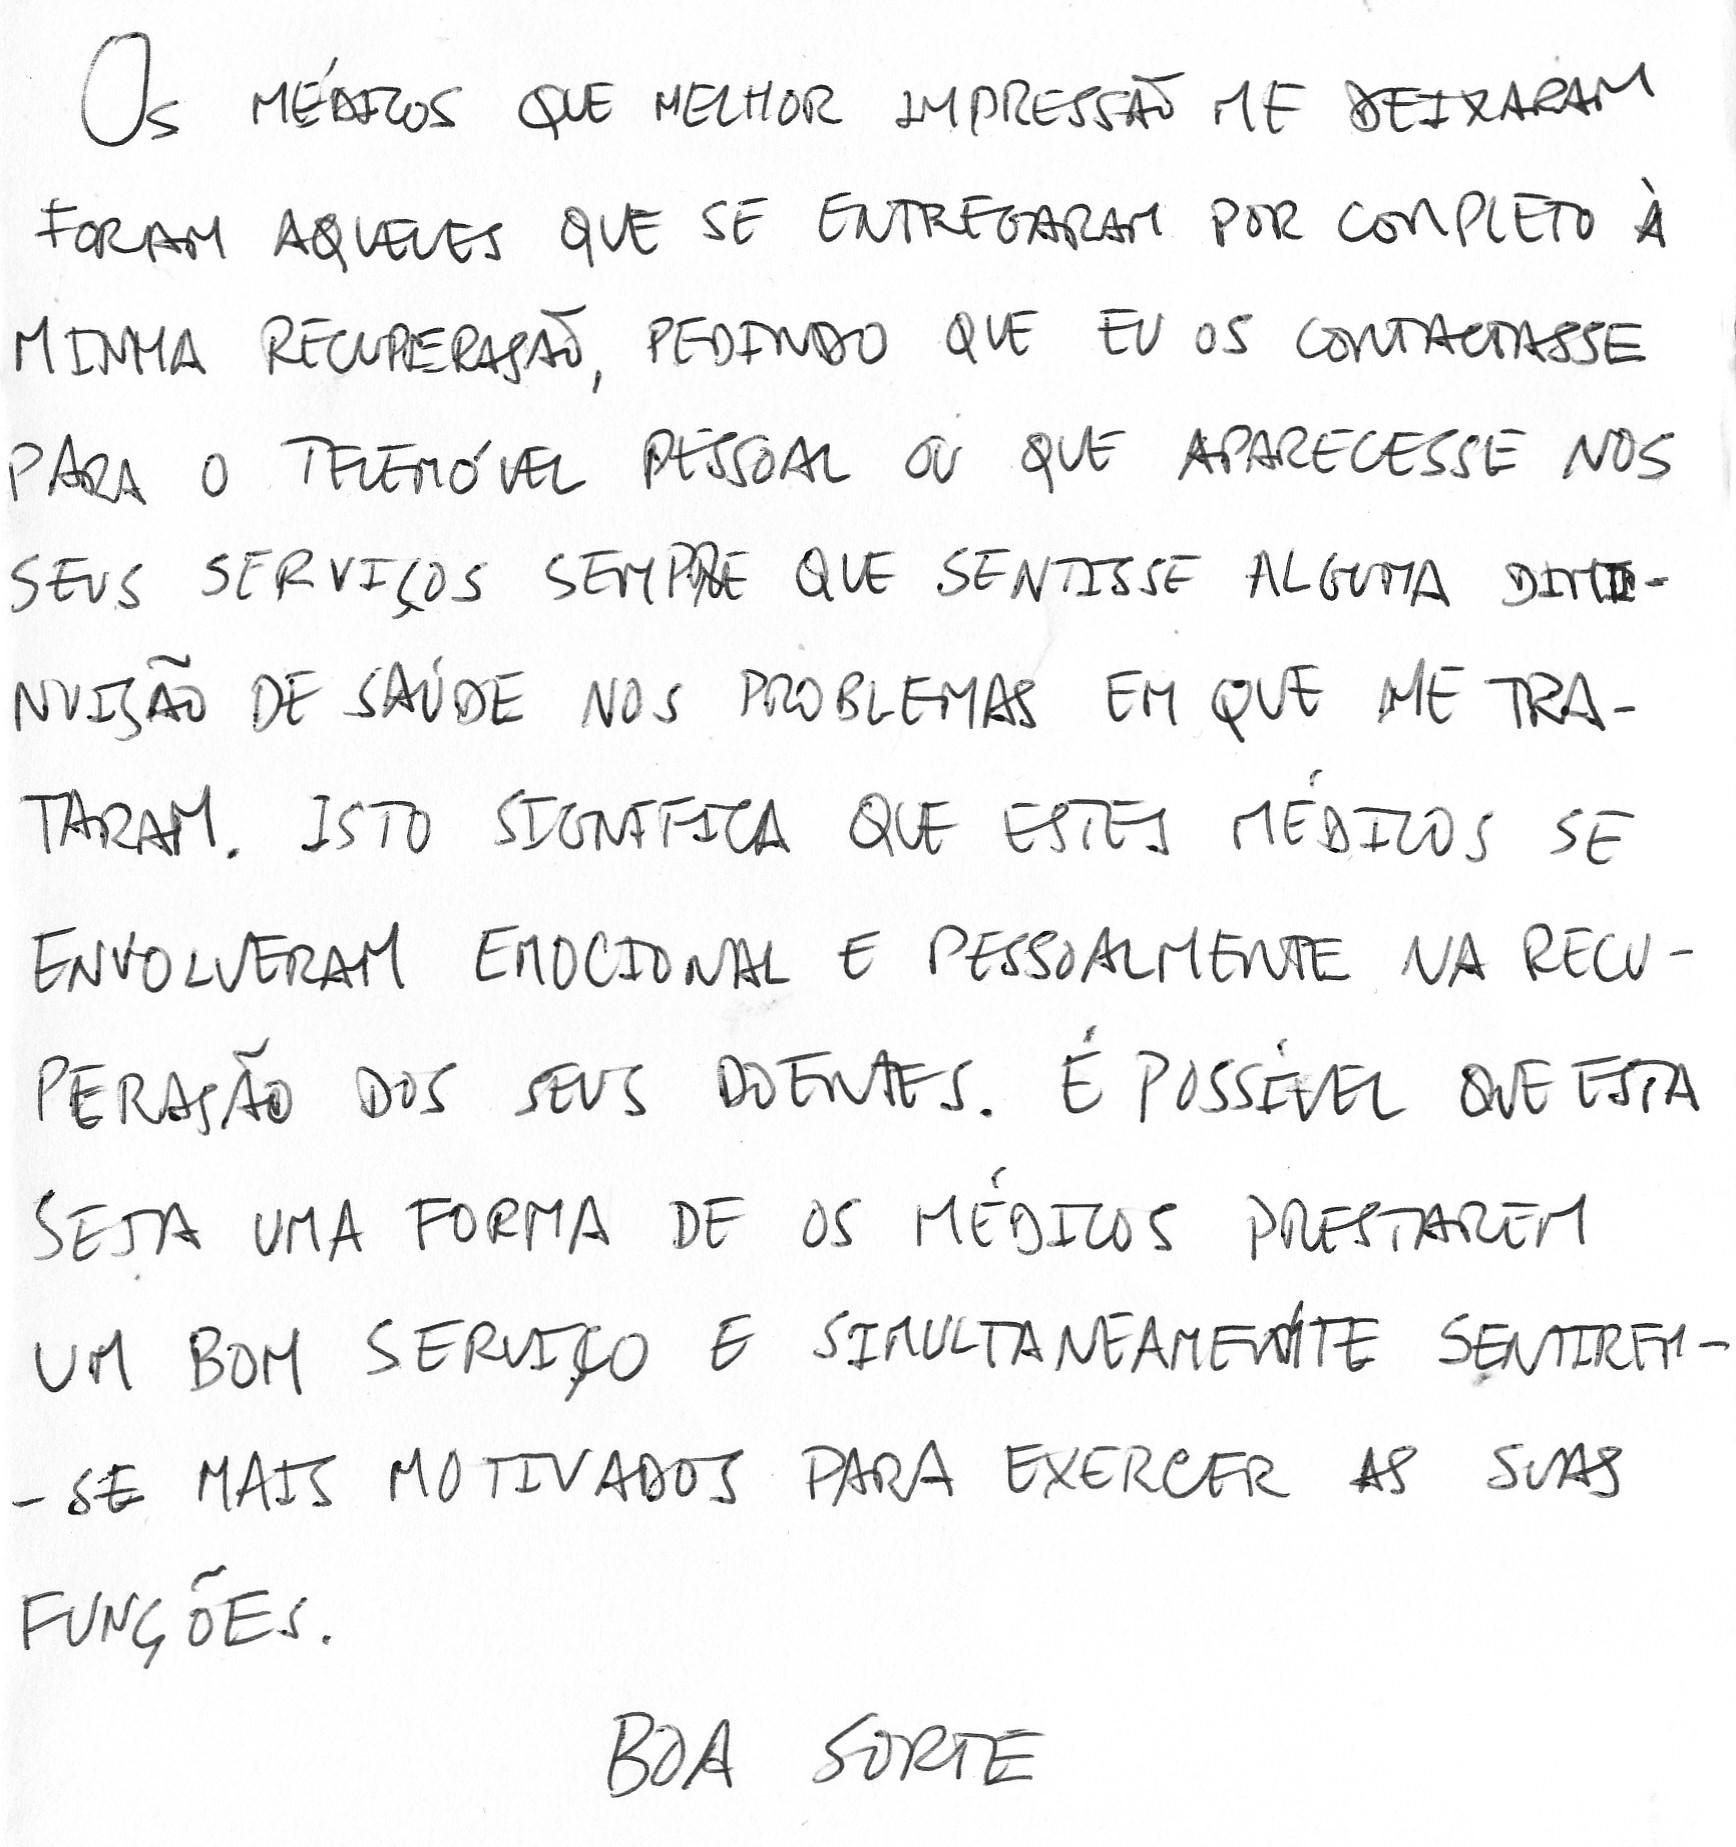 Os MÉDICOS QUE MELHOR IMPRESSÃO ME DEIXARAM
FORAM AQUELES QUE SE ENTREGARAM POR COMPLETO À
MINHA RECUPERAÇÃO, PEDINDO QUE EU OS CONTACTASSE
PARA O TELEMÓVEL PESSOAL OU QUE APARECESSE NOS
SEUS SERVIÇOS SEMPRE QUE SENTISSE ALGUMA DIMI-
NUIÇÃO DE SAÚDE NOS PROBLEMAS EM QUE ME TRA-
TARAM. ISTO SIGNIFICA QUE ESTES MÉDICOS SE
ENVOLVERAM EMOCIONAL E PESSOALMENTE NA RECU-
PERAÇÃO DOS SEUS DOENTES. É POSSÍVEL QUE ESTA
SEJA UMA FORMA DE OS MÉDICOS PRESTAREM
UM BOM SERVIÇO E SIMULTANEAMENTE SENTIREM-
-SE MAIS MOTIVADOS PARA EXERCER AS SUAS
FUNÇÕES.
BOA SORTE